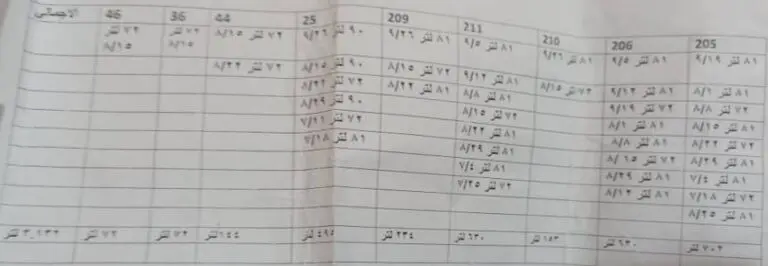 205 206 210 211 209 25 44 36 46 الاجمالي
٨١ لتر ٩/١٩ ٨١ لتر ٩/٥ ٨١ لتر ٩/٢٦ ٨١ لتر ٩/٥ ٨١ لتر ٩/٢٦ ٩٠ لتر ٩/٢٦ ٧٢ لتر ٨/١٥ ٧٢ لتر ٨/١٥ ٧٢ لتر ٨/١٥
٨١ لتر ٨/١ ٨١ لتر ٩/١٢ ٧٢ لتر ٨/١٥ ٨١ لتر ٩/١٢ ٧٢ لتر ٨/١٥ ٩٠ لتر ٨/١٥ ٧٢ لتر ٨/٢٢
٧٢ لتر ٨/٨ ٧٢ لتر ٩/١٩ ٨١ لتر ٨/٨ ٨١ لتر ٨/٢٢ ٧٢ لتر ٨/٢٢
٨١ لتر ٨/١٥ ٨١ لتر ٨/١ ٧٢ لتر ٨/١٥ ٩٠ لتر ٨/٢٩
٧٢ لتر ٨/٢٢ ٨١ لتر ٨/٨ ٨١ لتر ٨/٢٢ ٧٢ لتر ٧/١١
٨١ لتر ٨/٢٩ ٧٢ لتر ٨/١٥ ٨١ لتر ٨/٢٩ ٨١ لتر ٧/١٨
٨١ لتر ٧/٤ ٨١ لتر ٨/٢٩ ٨١ لتر ٧/٤
٧٢ لتر ٧/١٨ ٨١ لتر ٨/١٢ ٧٢ لتر ٧/٢٥
٨١ لتر ٨/٢٥
٧٠٢ لتر ٦٣٠ لتر ١٥٣ لتر ٦٣٠ لتر ٢٣٤ لتر ٤٩٥ لتر ١٤٤ لتر ٧٢ لتر ٧٢ لتر ٣.١٣٢ لتر